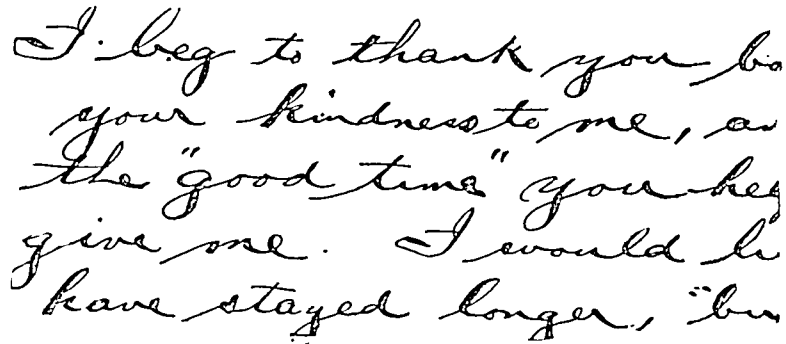 I beg to thank you
your kindness to me,
the "good time" you
give me. I would
have stayed longer,